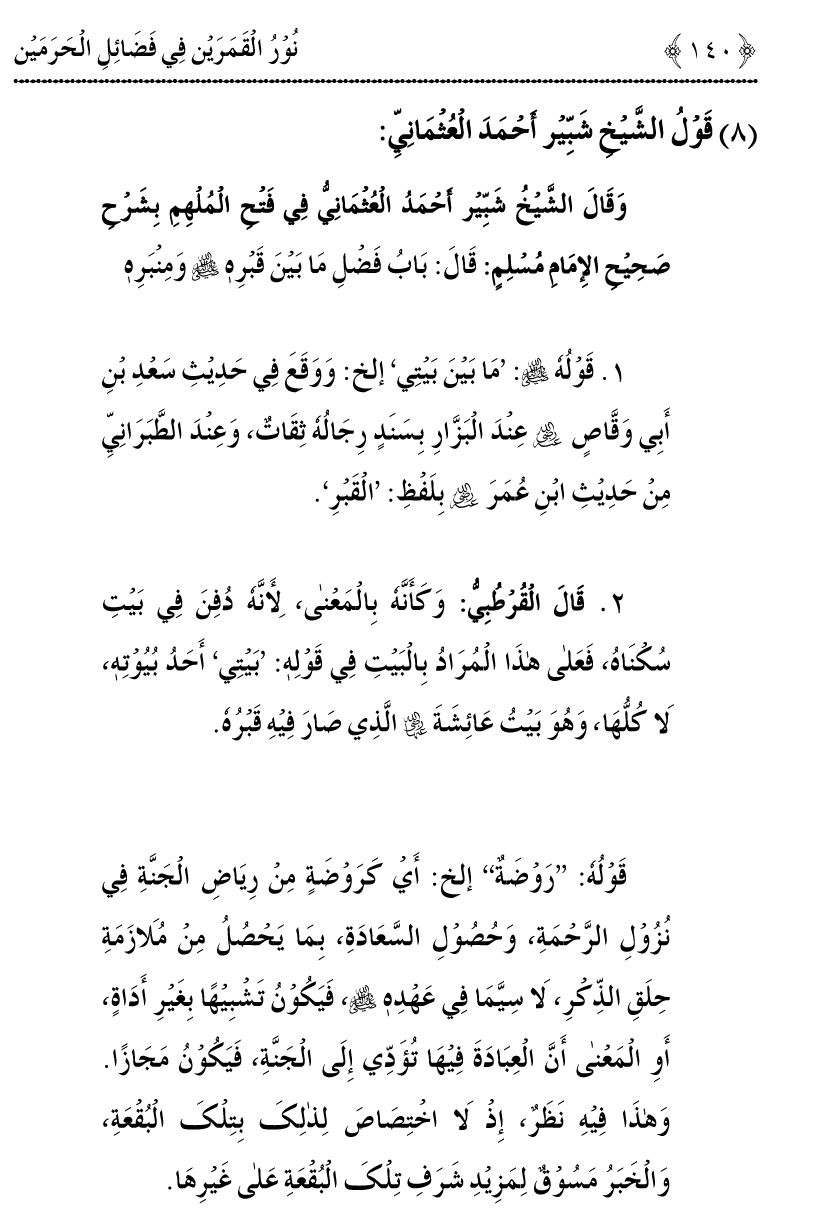 ﴿١٤٠﴾ نُوْرُ الْقَمَرَيْن فِي فَضَائِلِ الْحَرَمَيْن
(٨) قَوْلُ الشَّيْخِ شَبِّيْر أَحْمَدَ الْعُثْمَانِيِّ:
وَقَالَ الشَّيْخُ شَبِّيْر أَحْمَدُ الْعُثْمَانِيُّ فِي فَتْحِ الْمُلْهِمِ بِشَرْحِ
صَحِيْحِ الإِمَامِ مُسْلِمٍ: قَالَ: بَابُ فَضْلِ مَا بَيْنَ قَبْرِهٖ ﷺ وَمِنْبَرِهٖ
١. قَوْلُهٗ ﷺ: ’مَا بَيْنَ بَيْتِي‘ إلخ: وَوَقَعَ فِي حَدِيْثِ سَعْدِ بْنِ
أَبِي وَقَّاصٍ ؓ عِنْدَ الْبَزَّارِ بِسَنَدٍ رِجَالُهٗ ثِقَاتٌ، وَعِنْدَ الطَّبَرَانِيِّ
مِنْ حَدِيْثِ ابْنِ عُمَرَ ؓ بِلَفْظِ: ’الْقَبْرِ‘.
٢. قَالَ الْقُرْطُبِيُّ: وَكَأَنَّهٗ بِالْمَعْنٰى، لِأَنَّهٗ دُفِنَ فِي بَيْتِ
سُكْنَاهُ، فَعَلٰى هٰذَا الْمُرَادُ بِالْبَيْتِ فِي قَوْلِهٖ: ’بَيْتِي‘ أَحَدُ بُيُوْتِهٖ،
لَا كُلُّهَا، وَهُوَ بَيْتُ عَائِشَةَ ؓ الَّذِي صَارَ فِيْهِ قَبْرُهٗ.
قَوْلُهٗ: ’’رَوْضَةٌ‘‘ إلخ: أَيْ كَرَوْضَةٍ مِنْ رِيَاضِ الْجَنَّةِ فِي
نُزُوْلِ الرَّحْمَةِ، وَحُصُوْلِ السَّعَادَةِ، بِمَا يَحْصُلُ مِنْ مُلَازَمَةِ
حِلَقِ الذِّكْرِ، لَا سِيَّمَا فِي عَهْدِهٖ ﷺ، فَيَكُوْنُ تَشْبِيْهًا بِغَيْرِ أَدَاةٍ،
أَوِ الْمَعْنٰى أَنَّ الْعِبَادَةَ فِيْهَا تُؤَدِّي إِلَى الْجَنَّةِ، فَيَكُوْنُ مَجَازًا.
وَهٰذَا فِيْهِ نَظَرٌ، إِذْ لَا اخْتِصَاصَ لِذٰلِكَ بِتِلْكَ الْبُقْعَةِ،
وَالْخَبَرُ مَسُوْقٌ لِمَزِيْدِ شَرَفِ تِلْكَ الْبُقْعَةِ عَلٰى غَيْرِهَا.